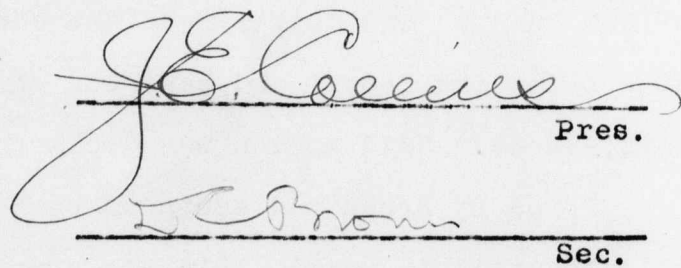 J.E. Collins
Pres.
L C Brown
Sec.